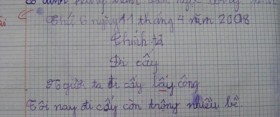 Thứ 6 ngày 11 tháng 4 năm 2008
Chính tả
Đi cấy
Người ta đi cấy lấy công
Tôi nay đi cấy còn trông nhiều bề